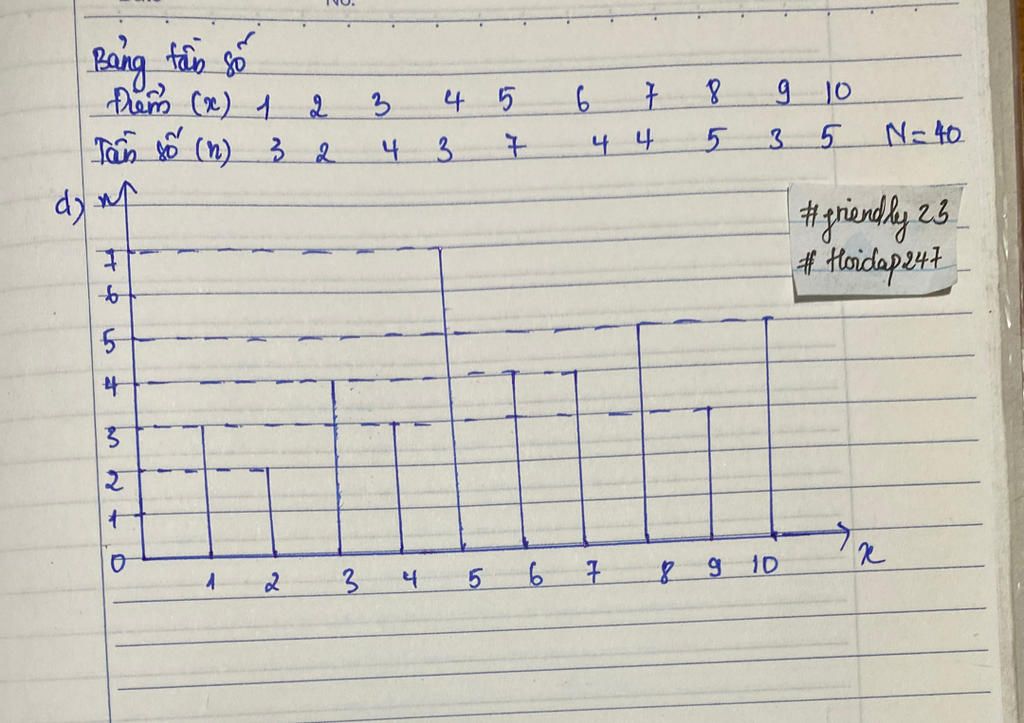 No.
Bảng tần số
Điểm (x) 1 2 3 4 5 6 7 8 9 10
Tần số (n) 3 2 4 3 7 4 4 5 3 5 N=40
d) n
#friendly23
#Hoidap247
7
6
5
4
3
2
1
0
1 2 3 4 5 6 7 8 9 10 x